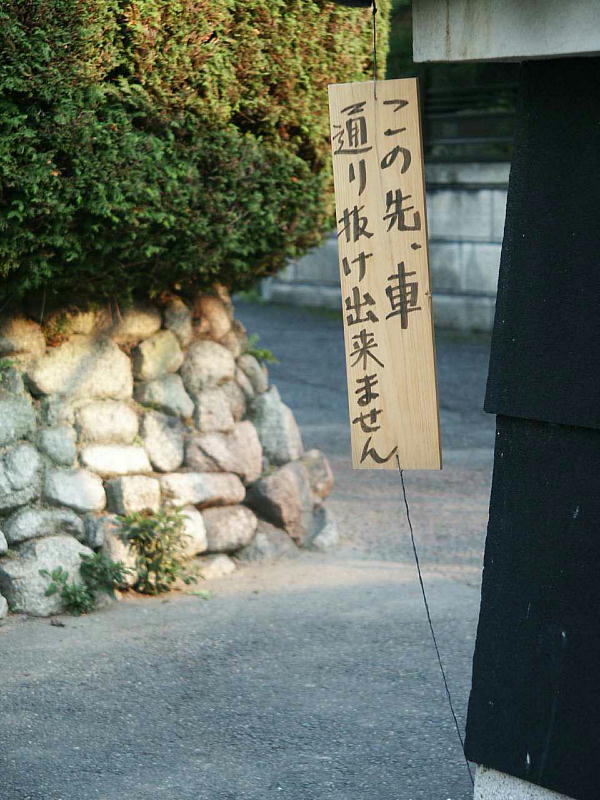 この先、車
通り抜け出来ません